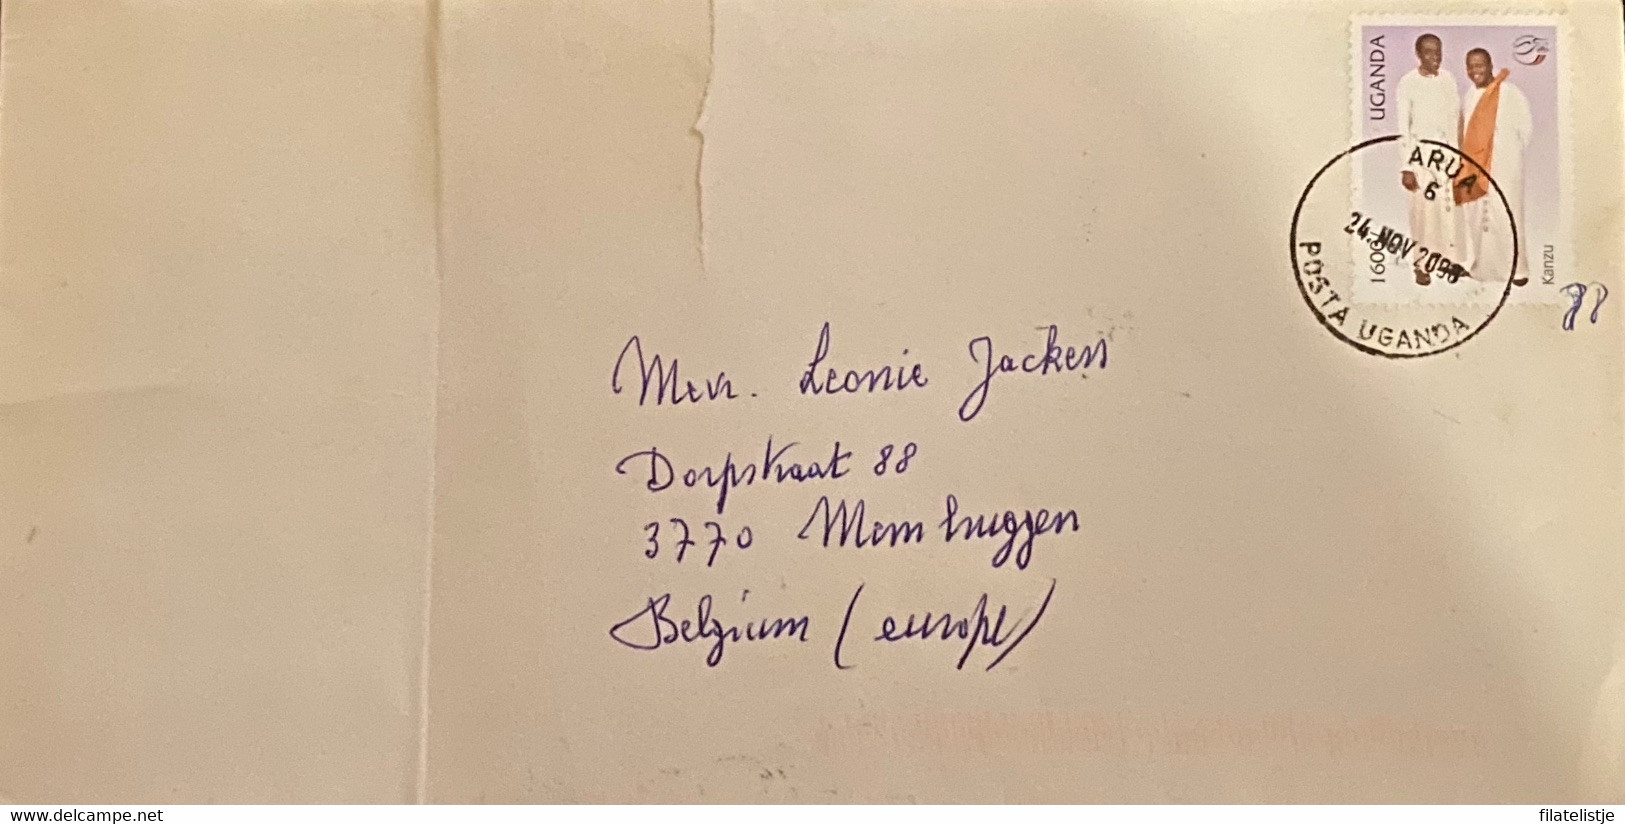 UGANDA
1600/-
Kanzu
ARUA
6
24 NOV 2008
POSTA UGANDA
88
Mevr. Leonie Jackers
Dorpstraat 88
3770 Membruggen
Belgium (europe)
www.delcampe.net
filatelistje